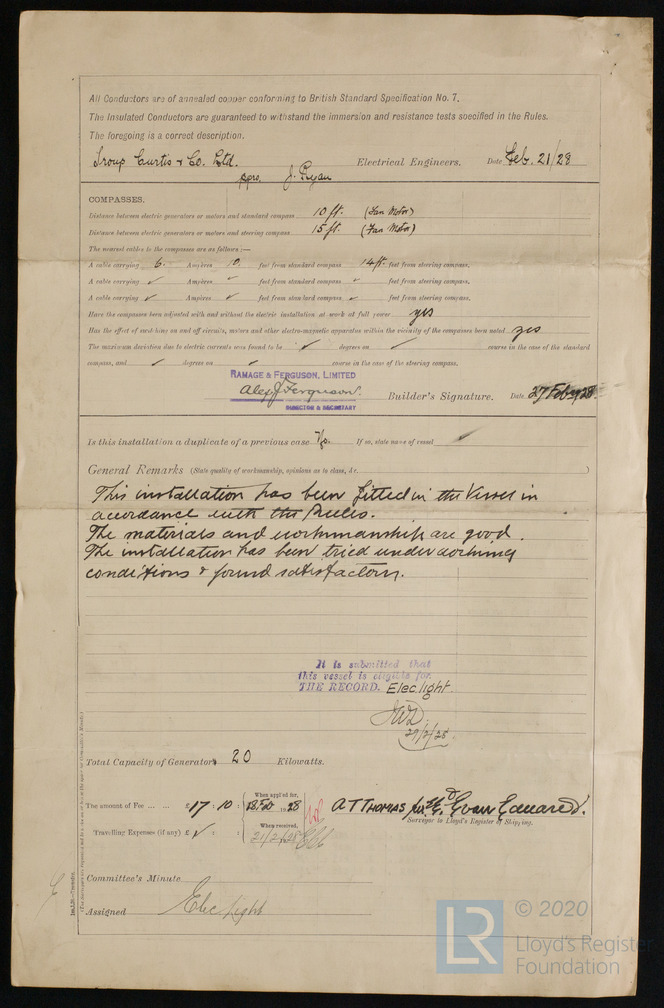 All Conductors are of annealed copper conforming to British Standard Specification No. 7.
The Insulated Conductors are guaranteed to withstand the immersion and resistance tests specified in the Rules.
The foregoing is a correct description.
Troup Curtis & Co. Ltd. Electrical Engineers. Date Feb. 21/28
ppro. J.
COMPASSES.
Distance between electric generators or motors and standard compass 10 ft. (Fan Motor)
Distance between electric generators or motors and steering compass 15 ft. (Fan Motor)
The nearest cables to the compasses are as follows :—
A cable carrying 6 Ampères feet from standard compass 14 ft. feet from steering compass.
A cable carrying ✓ Ampères ✓ feet from standard compass ✓ feet from steering compass.
A cable carrying ✓ Ampères ✓ feet from standard compass ✓ feet from steering compass.
Have the compasses been adjusted with and without the electric installation at work at full power yes
Has the effect of switching on and off circuits, motors and other electro-magnetic apparatus within the vicinity of the compasses been noted yes
The maximum deviation due to electric currents was found to be ✓ degrees on ✓ course in the case of the standard
compass, and ✓ degrees on ✓ course in the case of the steering compass.
RAMAGE & FERGUSON, LIMITED
Alex J Ferguson. Builder's Signature. Date 27 Feb 1928
DIRECTOR & SECRETARY
Is this installation a duplicate of a previous case No. If so, state name of vessel ✓
General Remarks (State quality of workmanship, opinions as to class, &c. )
This installation has been fitted in the Vessel in
accordance with the Rules.
The materials and workmanship are good.
The installation has been tried under working
conditions & found satisfactory.
It is submitted that
this vessel is eligible for
THE RECORD. Elec. light.
JWD.
29/2/28
Total Capacity of Generators 20 Kilowatts.
When applied for,
The amount of Fee ... ... £ 17 : 10 : 28 A T THOMAS for Evan Edwards.
Surveyor to Lloyd's Register of Shipping.
When received,
Travelling Expenses (if any) £ ✓ : : 21/2/28
Committee's Minute
Assigned Elec. Light
© 2020
LR Lloyd's Register
Foundation